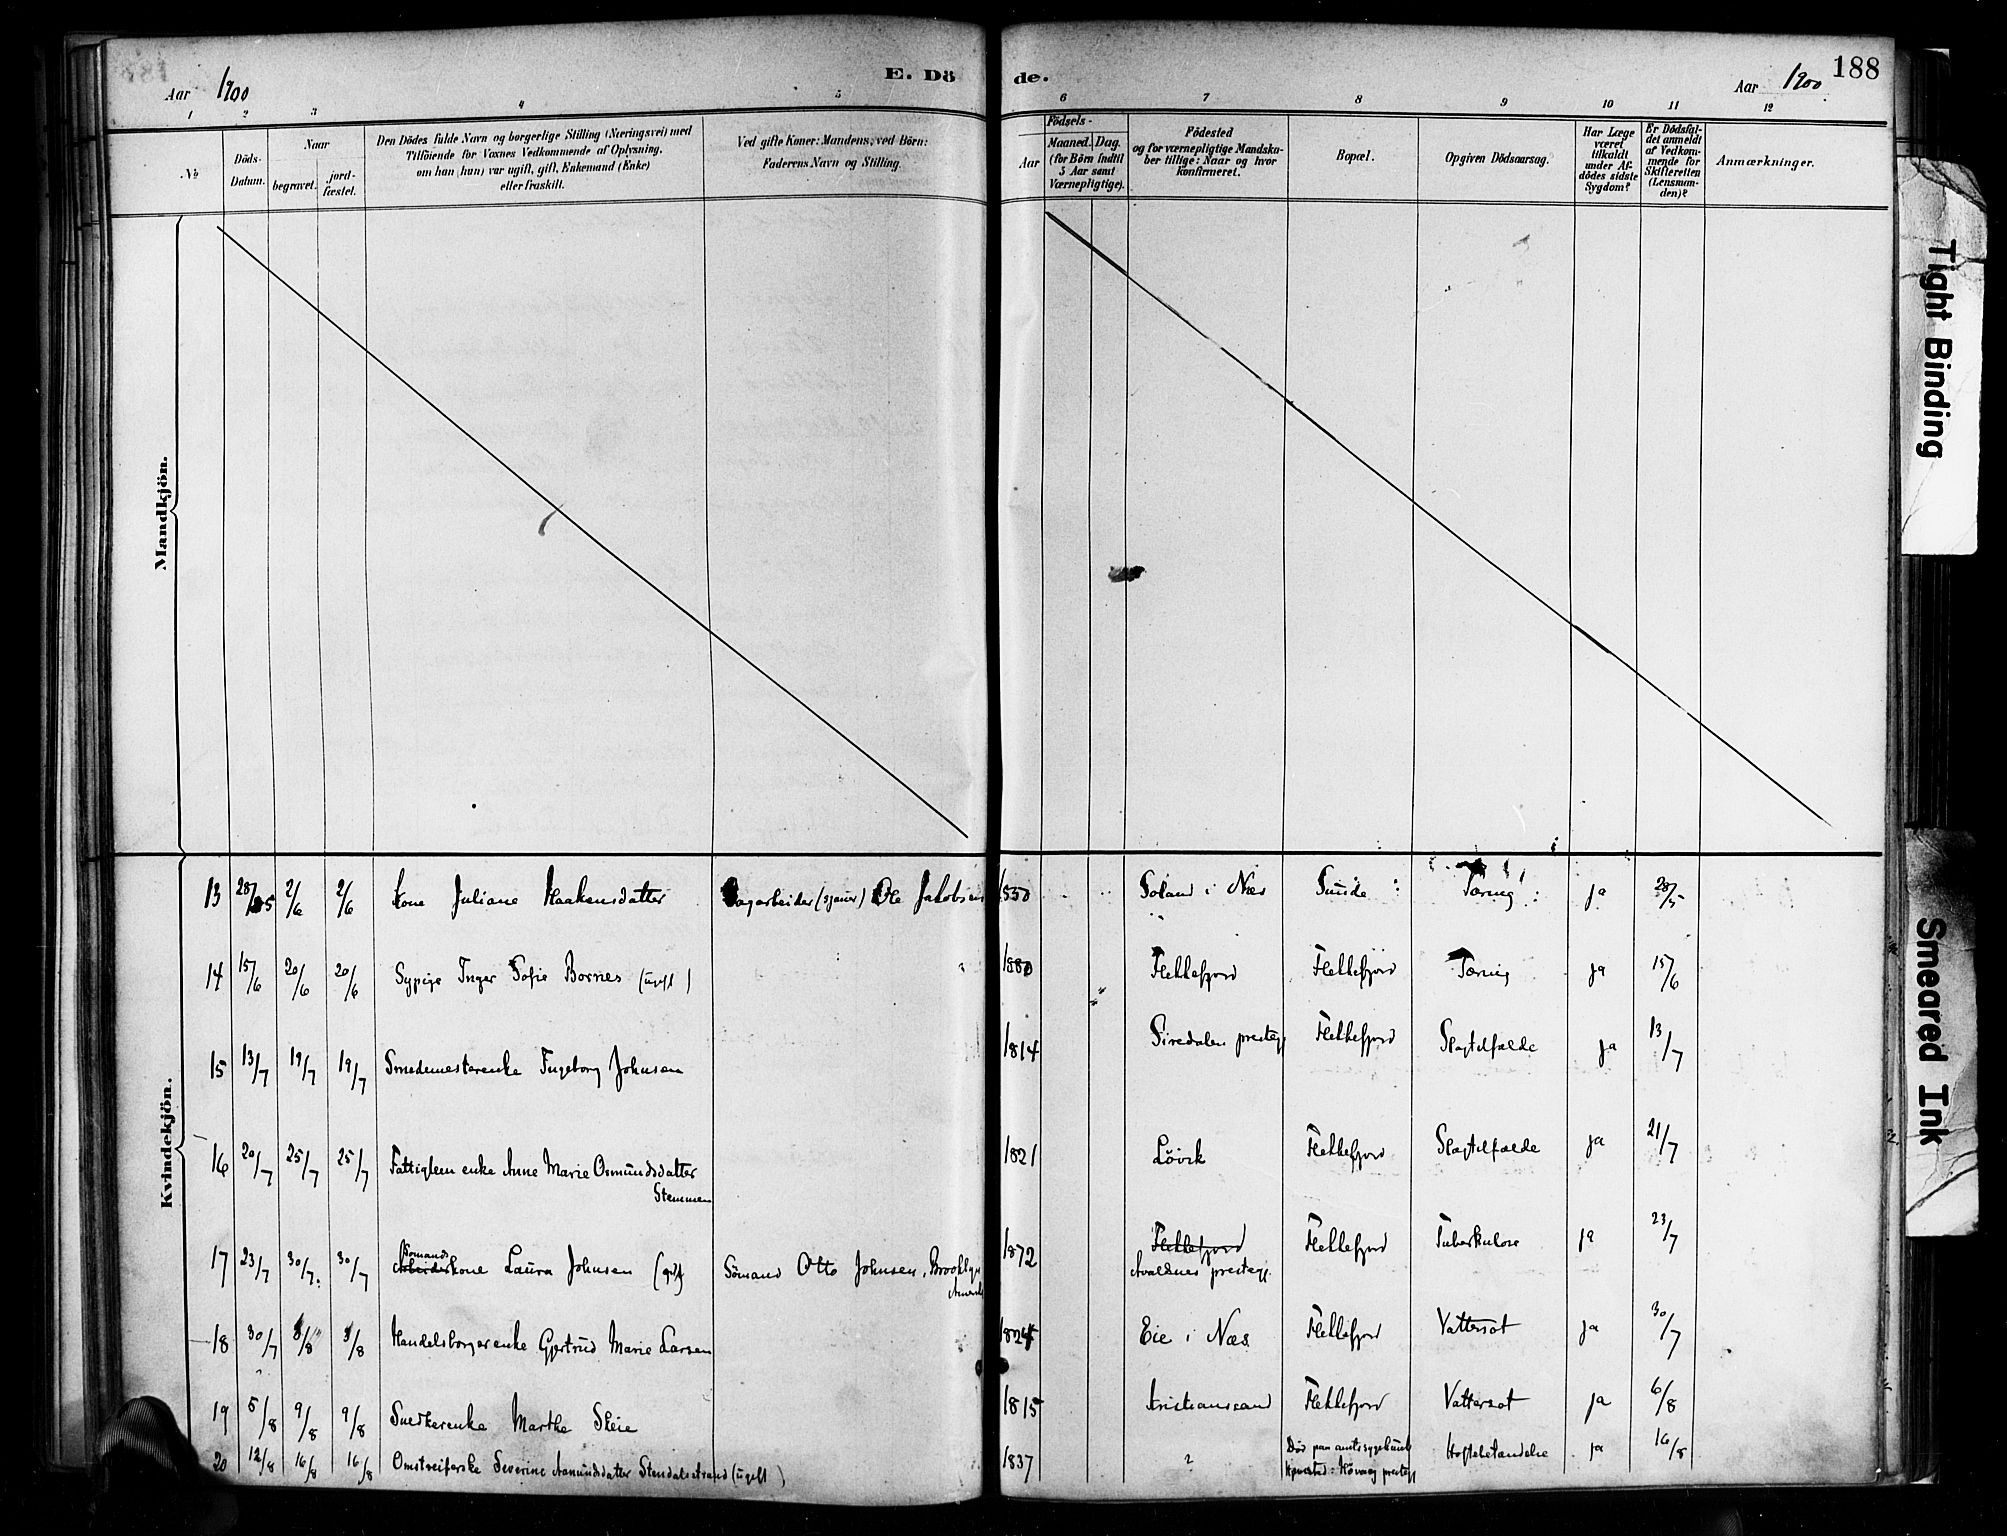 188
Aar 1900
E. Döde.
Aar 1900
1 2 3 4 5 6 7 8 9 10 11 12
№
Döds-Datum.
Naar
begravet.
jord-fæstet.
Den Dödes fulde Navn og borgerlige Stilling (Næringsvei) med
Tilföiende for Voxnes Vedkommende af Oplysning,
om han (hun) var ugift, gift, Enkemand (Enke)
eller fraskilt.
Ved gifte Koner: Mandens, ved Börn:
Faderens Navn og Stilling.
Födsels-
Aar
Maaned. Dag.
(for Börn indtil
5 Aar samt
Værnepligtige).
Födested
og for værnepligtige Mandska-
ber tillige: Naar og hvor
konfirmeret.
Bopæl.
Opgiven Dödsaarsag.
Har Læge
været
tilkaldt
under Af-
dödes sidste
Sygdom?
Er Dödsfal-
det anmeldt
af Vedkom-
mende for
Skifteretten
(Lensman-
den)?
Anmærkninger.
Mandkjön.
Kvindekjön.
13 28/5 2/6 2/6 Kone Juliane Haakensdatter Dagarbeider (sjauer) Ole Jakobsen 1850 Soland i Næs Sunde Tæring ja 28/5
14 15/6 20/6 20/6 Sypige Inger Sofie Bornes (ugift) 1880 Flekkefjord Flekkefjord Tæring ja 15/6
15 13/7 19/7 19/7 Smedemesterenke Ingeborg Johnsen 1814 Siredalen prestegj Flekkefjord Slagtilfælde ja 13/7
16 20/7 25/7 25/7 Fattiglem enke Anne Marie Osmundsdatter 1821 Løvik Flekkefjord Slagtilfælde ja 21/7
Stemmen
17 23/7 30/7 30/7 Sømandskone Laura Johnsen (gift) Sømand Otto Johnsen, Brooklyn 1872 Flekkefjord Flekkefjord Tuberkulose ja 23/7
Avaldsnes prestegj.
18 30/7 3/8 3/8 Handelsborgerenke Gjertrud Marie Larsen 1824 Eie i Næs Flekkefjord Vattersot ja 30/7
19 5/8 9/8 9/8 Snedkerenke Marthe Skeie 1815 Kristianssand Flekkefjord Vattersot ja 6/8
20 12/8 16/8 16/8 Omstreiferske Severine Aanundsdatter Stendalsstrand (ugift) 1837 ? Død paa amtssygehuset Hoftebetændelse ja 16/8
Hjemsted: Høvaag prestegj
Tight Binding
Smeared Ink